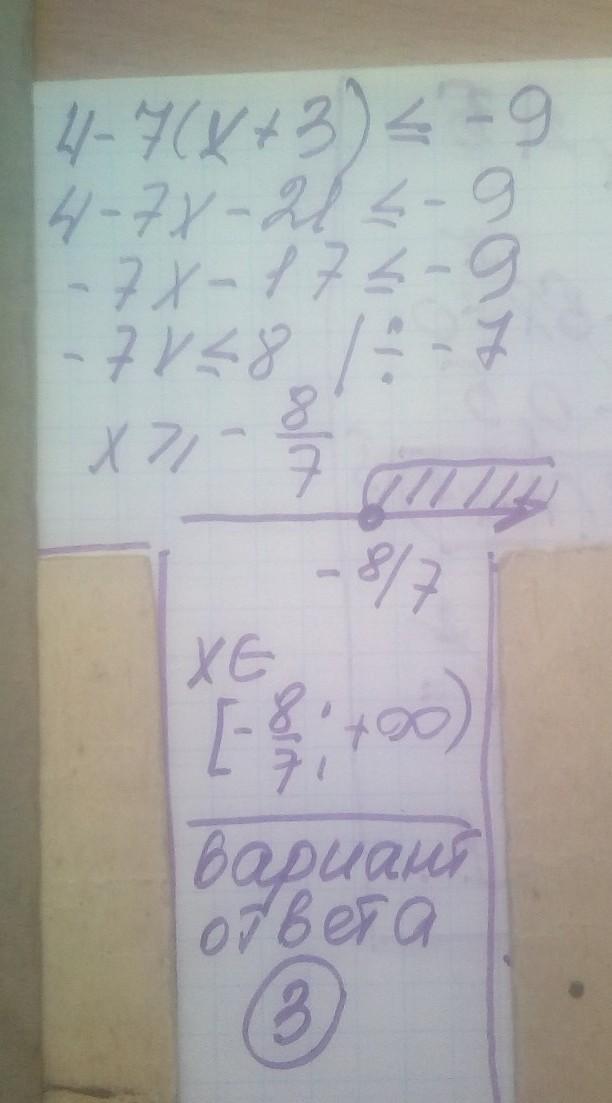 4-7(x+3) ≤ -9
4-7x-21 ≤ -9
-7x-17 ≤ -9
-7x ≤ 8 | ÷ -7
x ⩾ - 8/7
- 8/7
x ∈
[- 8/7; +∞)
вариант
ответа
3